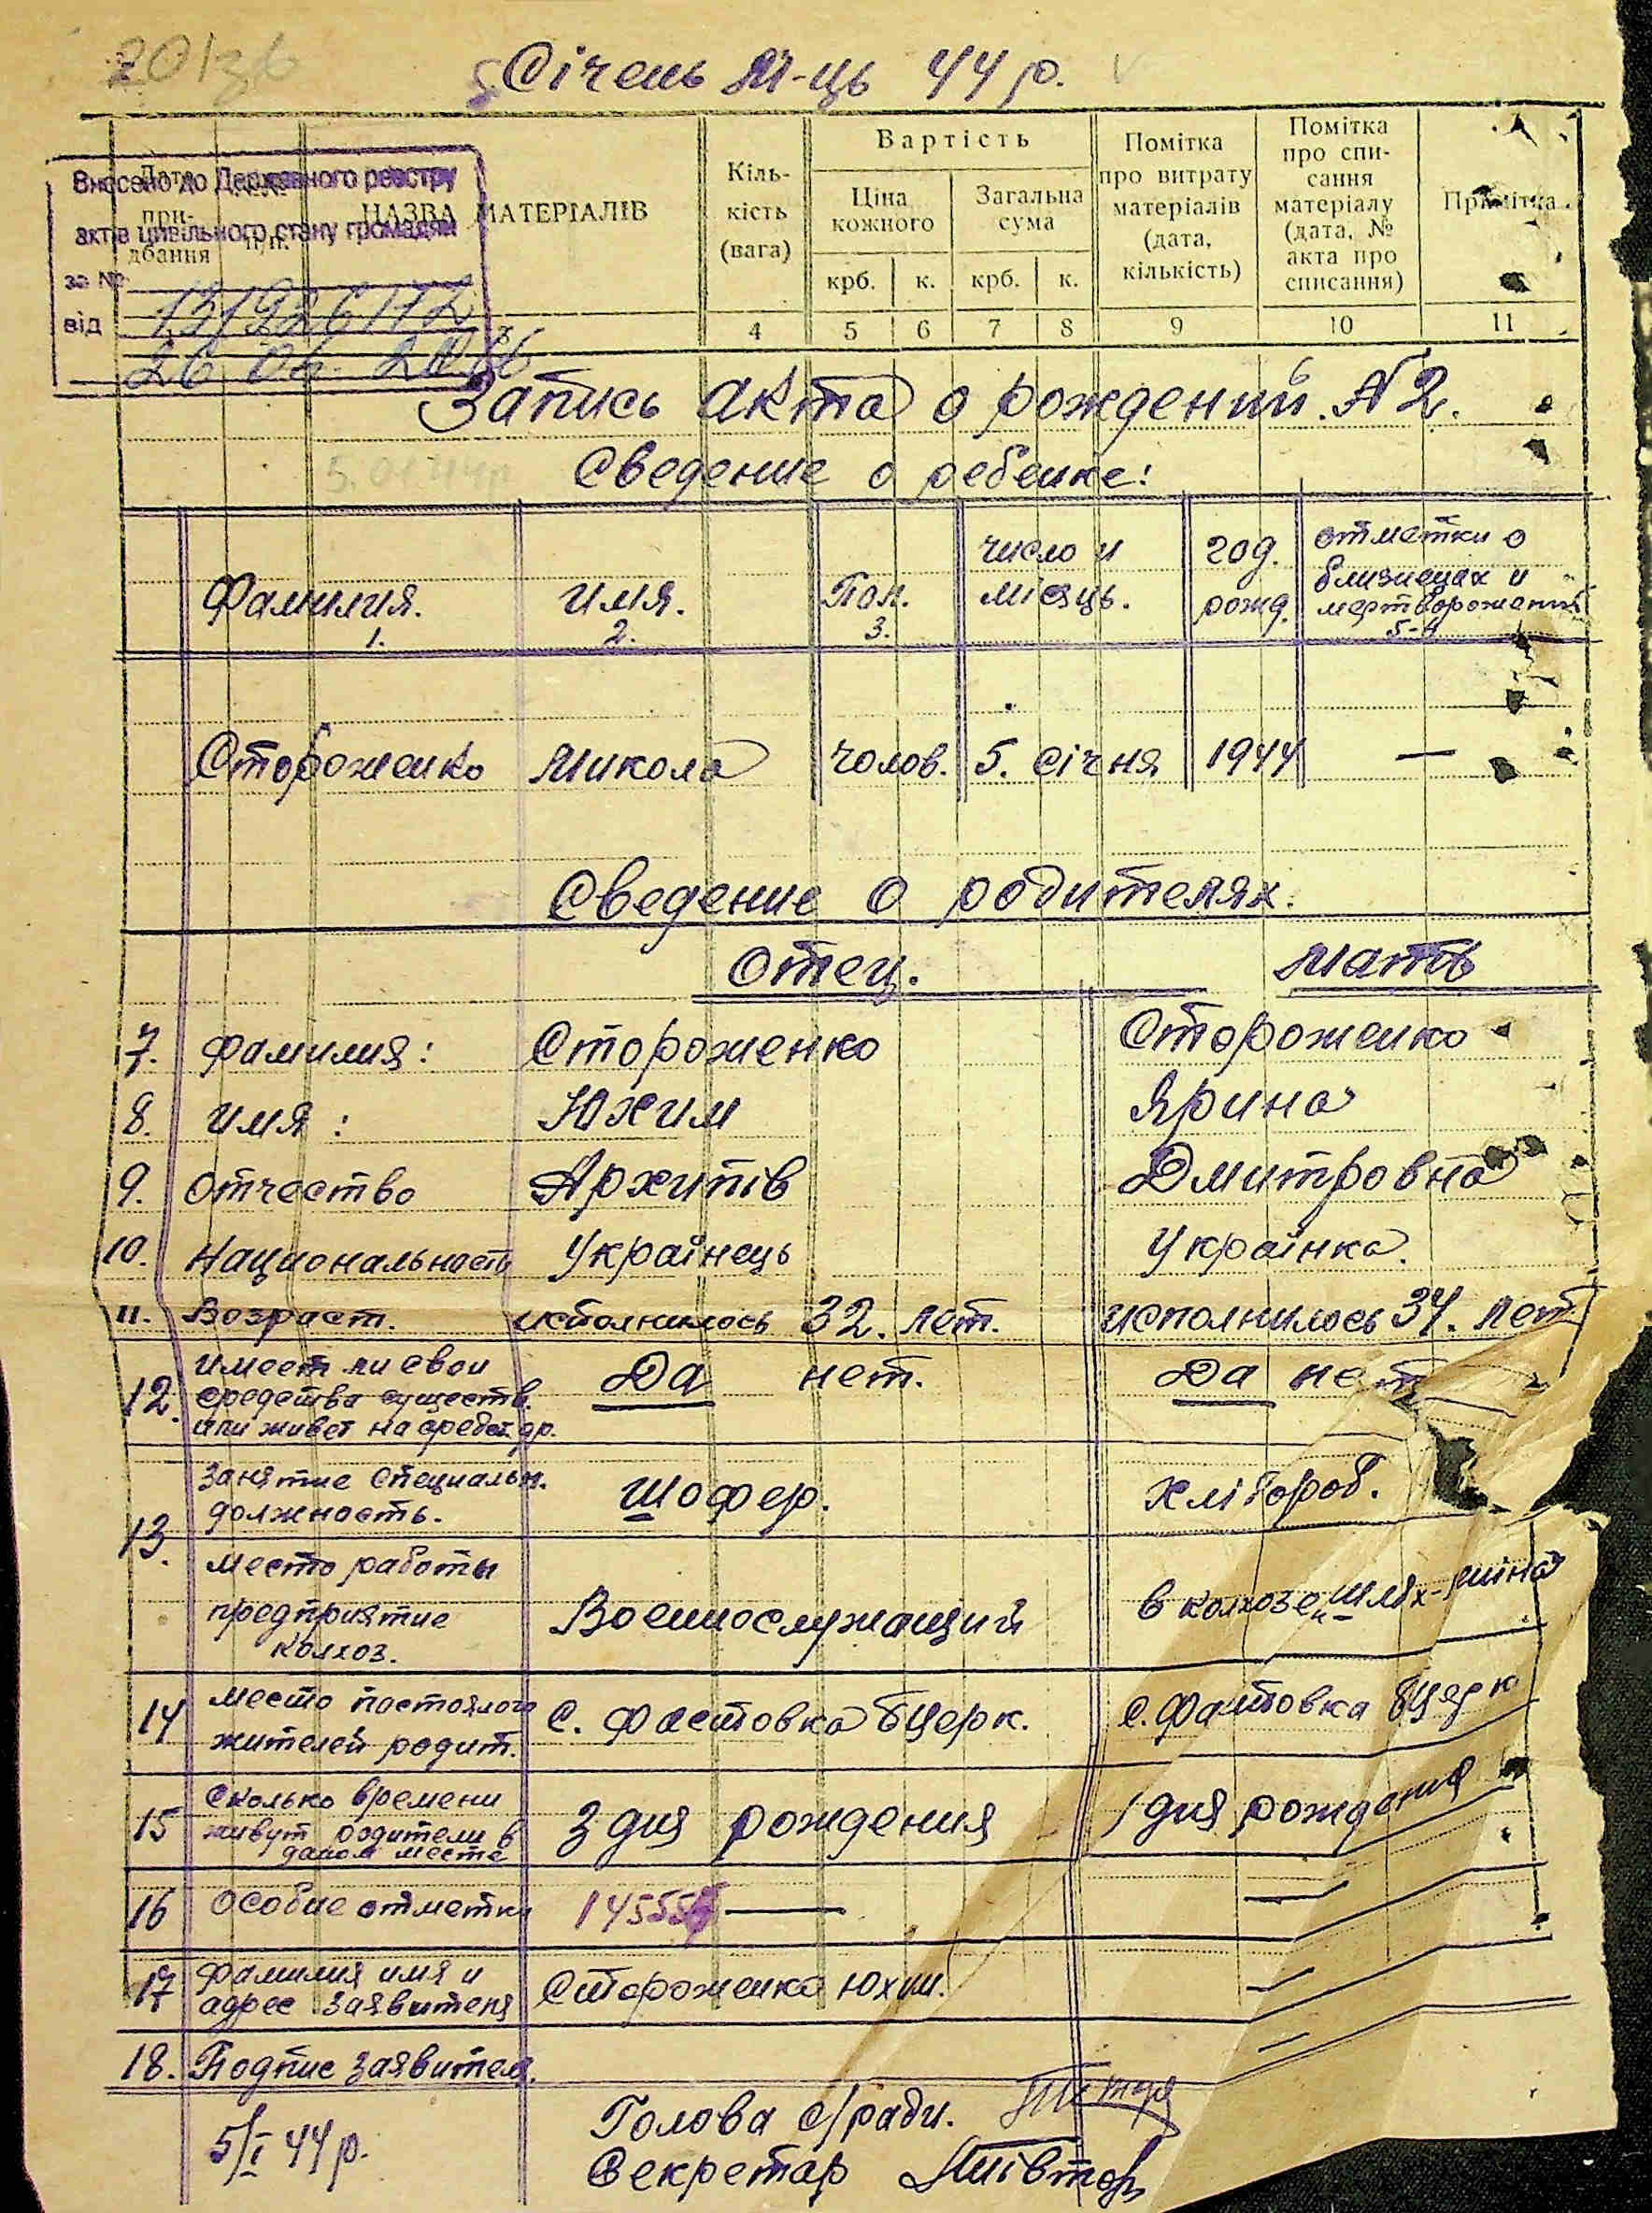 Січень М-ць 44 р.
Внесено до Державного реєстру
актів цивільного стану громадян
за №
від
26 06
Дата
при-
дбання
НАЗВА МАТЕРІАЛІВ
Кіль-
кість
(вага)
Вартість
Ціна
кожного
Загальна
сума
крб. к. крб. к.
Помітка
про витрату
матеріалів
(дата,
кількість)
Помітка
про спи-
сання
матеріалу
(дата, №
акта про
списання)
Примітка
4 5 6 7 8 9 10 11
Запись акта о рождении. №2.
5.01.44р
Сведение о ребенке:
Фамилия.
1.
Имя.
2.
Пол.
3.
число и
місяць.
год.
рожд.
отметки о
близнецах и
мертворожении
5-6
Стороженко Микола чолов. 5. Січня 1944 —
Сведение о родителях.
Отец. Мать
7. Фамилия: Стороженко Стороженко
8. Имя: Юхим Ярина
9. Отчество Архипів Дмитровна
10. Национальность Українець Українка.
11. Возраст. исполнилось 32. лет. исполнилось 34. лет
12. имеет ли свои
средства существ.
или живет на средст. др.
Да нет. Да нет
13. Занятие специальн.
должность.
Шофер. Хлібороб.
Место работы
предприятие
колхоз.
Военнослужащий в колхозе
14 место постоян
жителей родит.
с. Фастовка Бцерк. с. Фастовка Бцерк
15 Сколько времени
живут родители в
даном месте
З дня рождения з дня рождения
16 Особие отметки 14555 —
17 Фамилия имя и
адрес заявителя
Стороженко Юхим.
18. Подпис заявителя.
5/I 44 р.
Голова с/ради.
Секретар